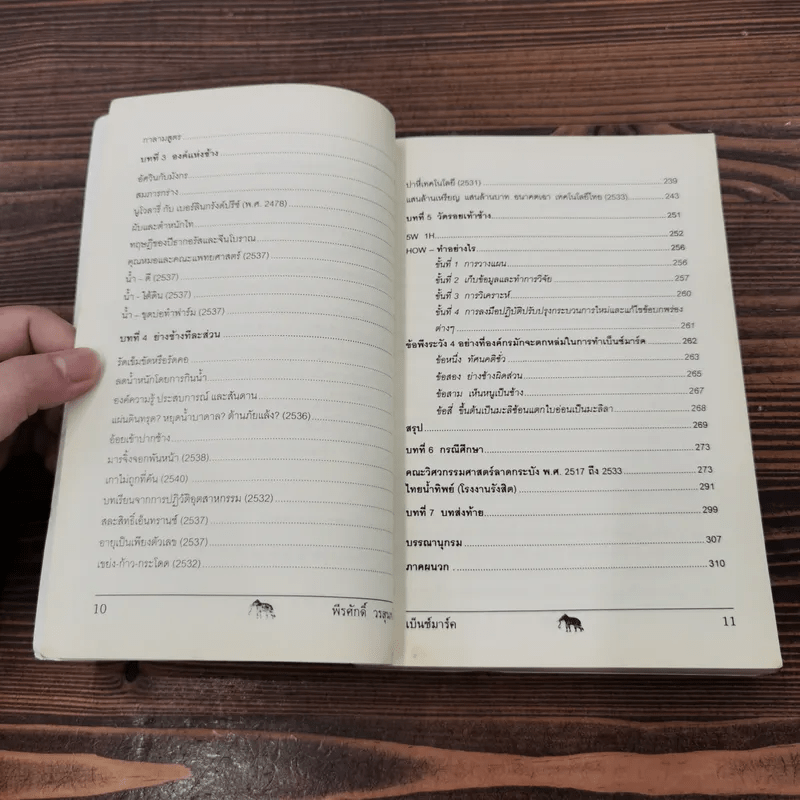 กาลามสูตร
บทที่ 3 องค์แห่งช้าง
อัศวินกับมังกร
สมภารกร่าง
บูโรลารี่ กับ เบอร์ลินกรังด์ปรีซ์ (พ.ศ. 2478)
ผับและตำหนักไท
ทฤษฎีของปีธากอรัสและจีนโบราณ
คุณหมอและคณะแพทยศาสตร์ (2537)
น้ำ – ดี (2537)
น้ำ – ใต้ดิน (2537)
น้ำ – ขุดบ่อทำฟาร์ม (2537)
บทที่ 4 ย่างช้างทีละส่วน
รัดเข็มขัดหรือรัดคอ
ลดน้ำหนักโดยการกินน้ำ
องค์ความรู้ ประสบการณ์ และสันดาน
แผ่นดินทรุด? หยุดน้ำบาดาล? ต้านภัยแล้ง? (2536)
อ้อยเข้าปากช้าง
มารจิ้งจอกพันหน้า (2538)
เกาไม่ถูกที่คัน (2540)
บทเรียนจากการปฏิวัติอุตสาหกรรม (2532)
สละสิทธิ์เอ็นทรานซ์ (2537)
อายุเป็นเพียงตัวเลข (2537)
เขย่ง-ก้าว-กระโดด (2532)
10 พีรศักดิ์
ปาหี่เทคโนโลยี (2531) 239
แสนล้านเหรียญ แสนล้านบาท อนาคตเอา เทคโนโลยีไทย (2533) 243
บทที่ 5 วัดรอยเท้าช้าง 251
5W 1H 252
HOW – ทำอย่างไร 256
ขั้นที่ 1 การวางแผน 256
ขั้นที่ 2 เก็บข้อมูลและทำการวิจัย 257
ขั้นที่ 3 การวิเคราะห์ 260
ขั้นที่ 4 การลงมือปฏิบัติปรับปรุงกระบวนการใหม่และแก้ไขข้อบกพร่อง
ต่างๆ 261
ข้อพึงระวัง 4 อย่างที่องค์กรมักจะตกหล่มในการทำเบ็นช์มาร์ค 262
ข้อหนึ่ง ทัศนคติชั่ว 263
ข้อสอง ย่างช้างผิดส่วน 265
ข้อสาม เห็นหนูเป็นช้าง 267
ข้อสี่ ขึ้นต้นเป็นมะลิซ้อนแตกใบอ่อนเป็นมะลิลา 268
สรุป 269
บทที่ 6 กรณีศึกษา 273
คณะวิศวกรรมศาสตร์ลาดกระบัง พ.ศ. 2517 ถึง 2533 273
ไทยน้ำทิพย์ (โรงงานรังสิต) 291
บทที่ 7 บทส่งท้าย 299
บรรณานุกรม 307
ภาคผนวก 310
เบ็นช์มาร์ค 11